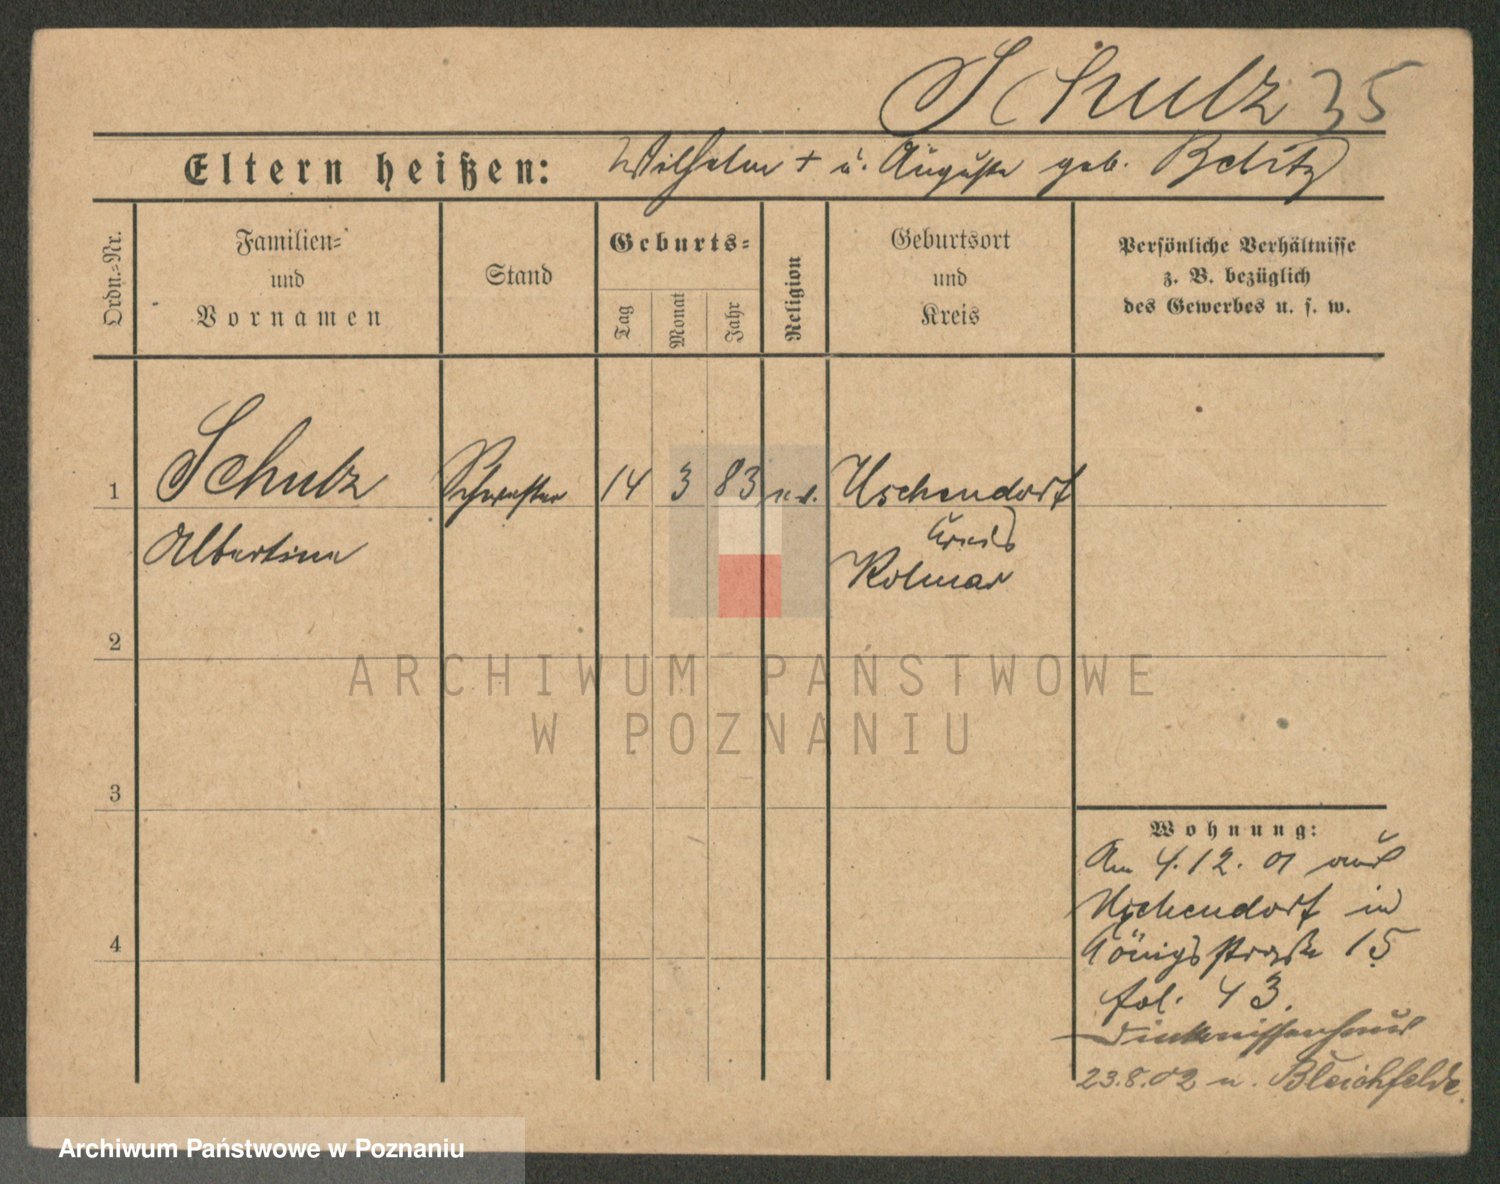 Schulz 35
Eltern heißen: Wilhelm + u. Auguste geb. Belitz
Ordn.-Nr.
Familien-
und
Vornamen
Stand
Geburts-
Tag
Monat
Jahr
Religion
Geburtsort
und
Kreis
Persönliche Verhältnisse
z. B. bezüglich
des Gewerbes u. s. w.
1 Schulz Schwester 14 3 83 Uschendorf
Kreis
Albertine Kolmar
2
ARCHIWUM PAŃSTWOWE
W POZNANIU
3
Wohnung:
Am 4.12.01 aus
Uschendorf in
4
Königsstraße 15
fol. 43.
Diakonissenhaus
23.8.02 n. Bleichfelde.
Archiwum Państwowe w Poznaniu